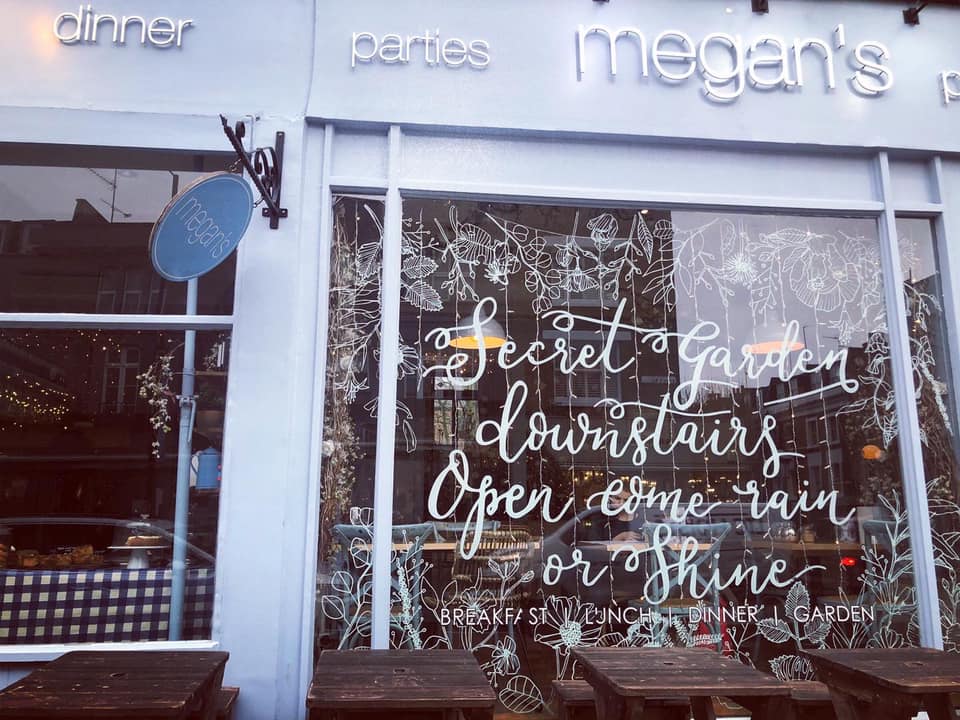 dinner
parties
megan's
p
megan's
Secret Garden
downstairs
Open come rain
or Shine
BREAKFAST LUNCH | DINNER | GARDEN